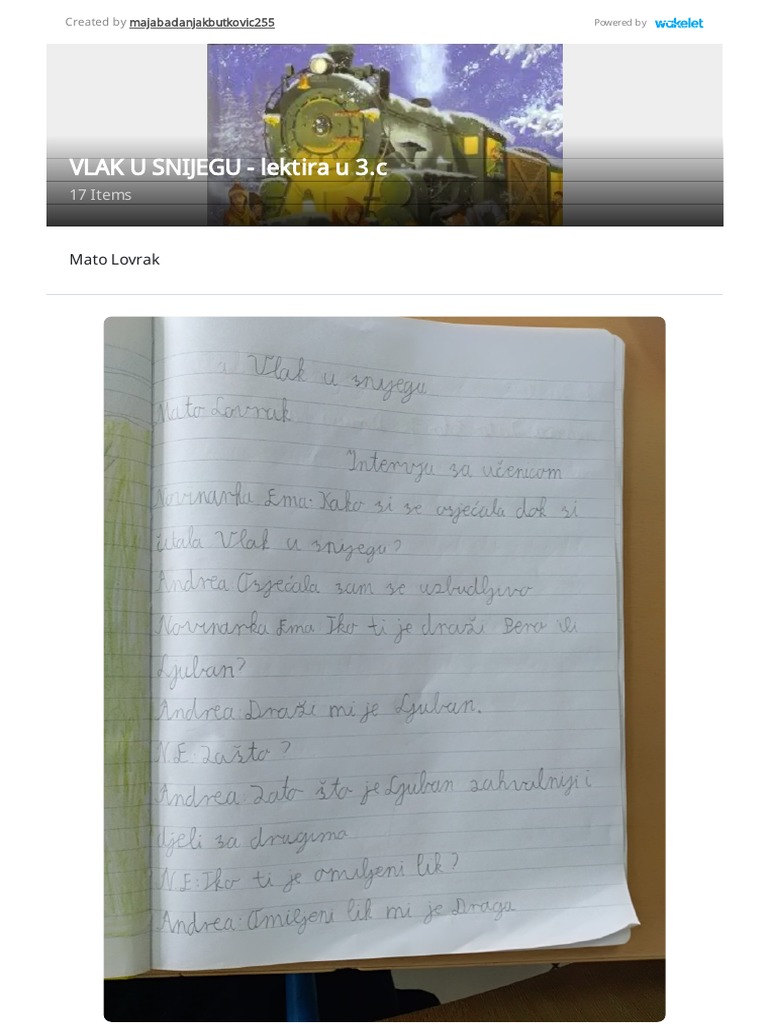 Created by majabadanjakbutkovic255
Powered by wakelet
VLAK U SNIJEGU - lektira u 3.c
17 Items
Mato Lovrak
Vlak u snijegu
Mato Lovrak
Intervju sa učenicom
Novinarka Ema: Kako si se osjećala dok si
čitala Vlak u snijegu?
Andrea: Osjećala sam se uzbudljivo
Novinarka Ema Tko ti je draži Pero ili
Ljuban?
Andrea: Draži mi je Ljuban.
N.E: Zašto?
Andrea: Zato što je Ljuban zahvalniji i
djeli sa drugima
N.E: Tko ti je omiljeni lik?
Andrea: Omiljeni lik mi je Draga